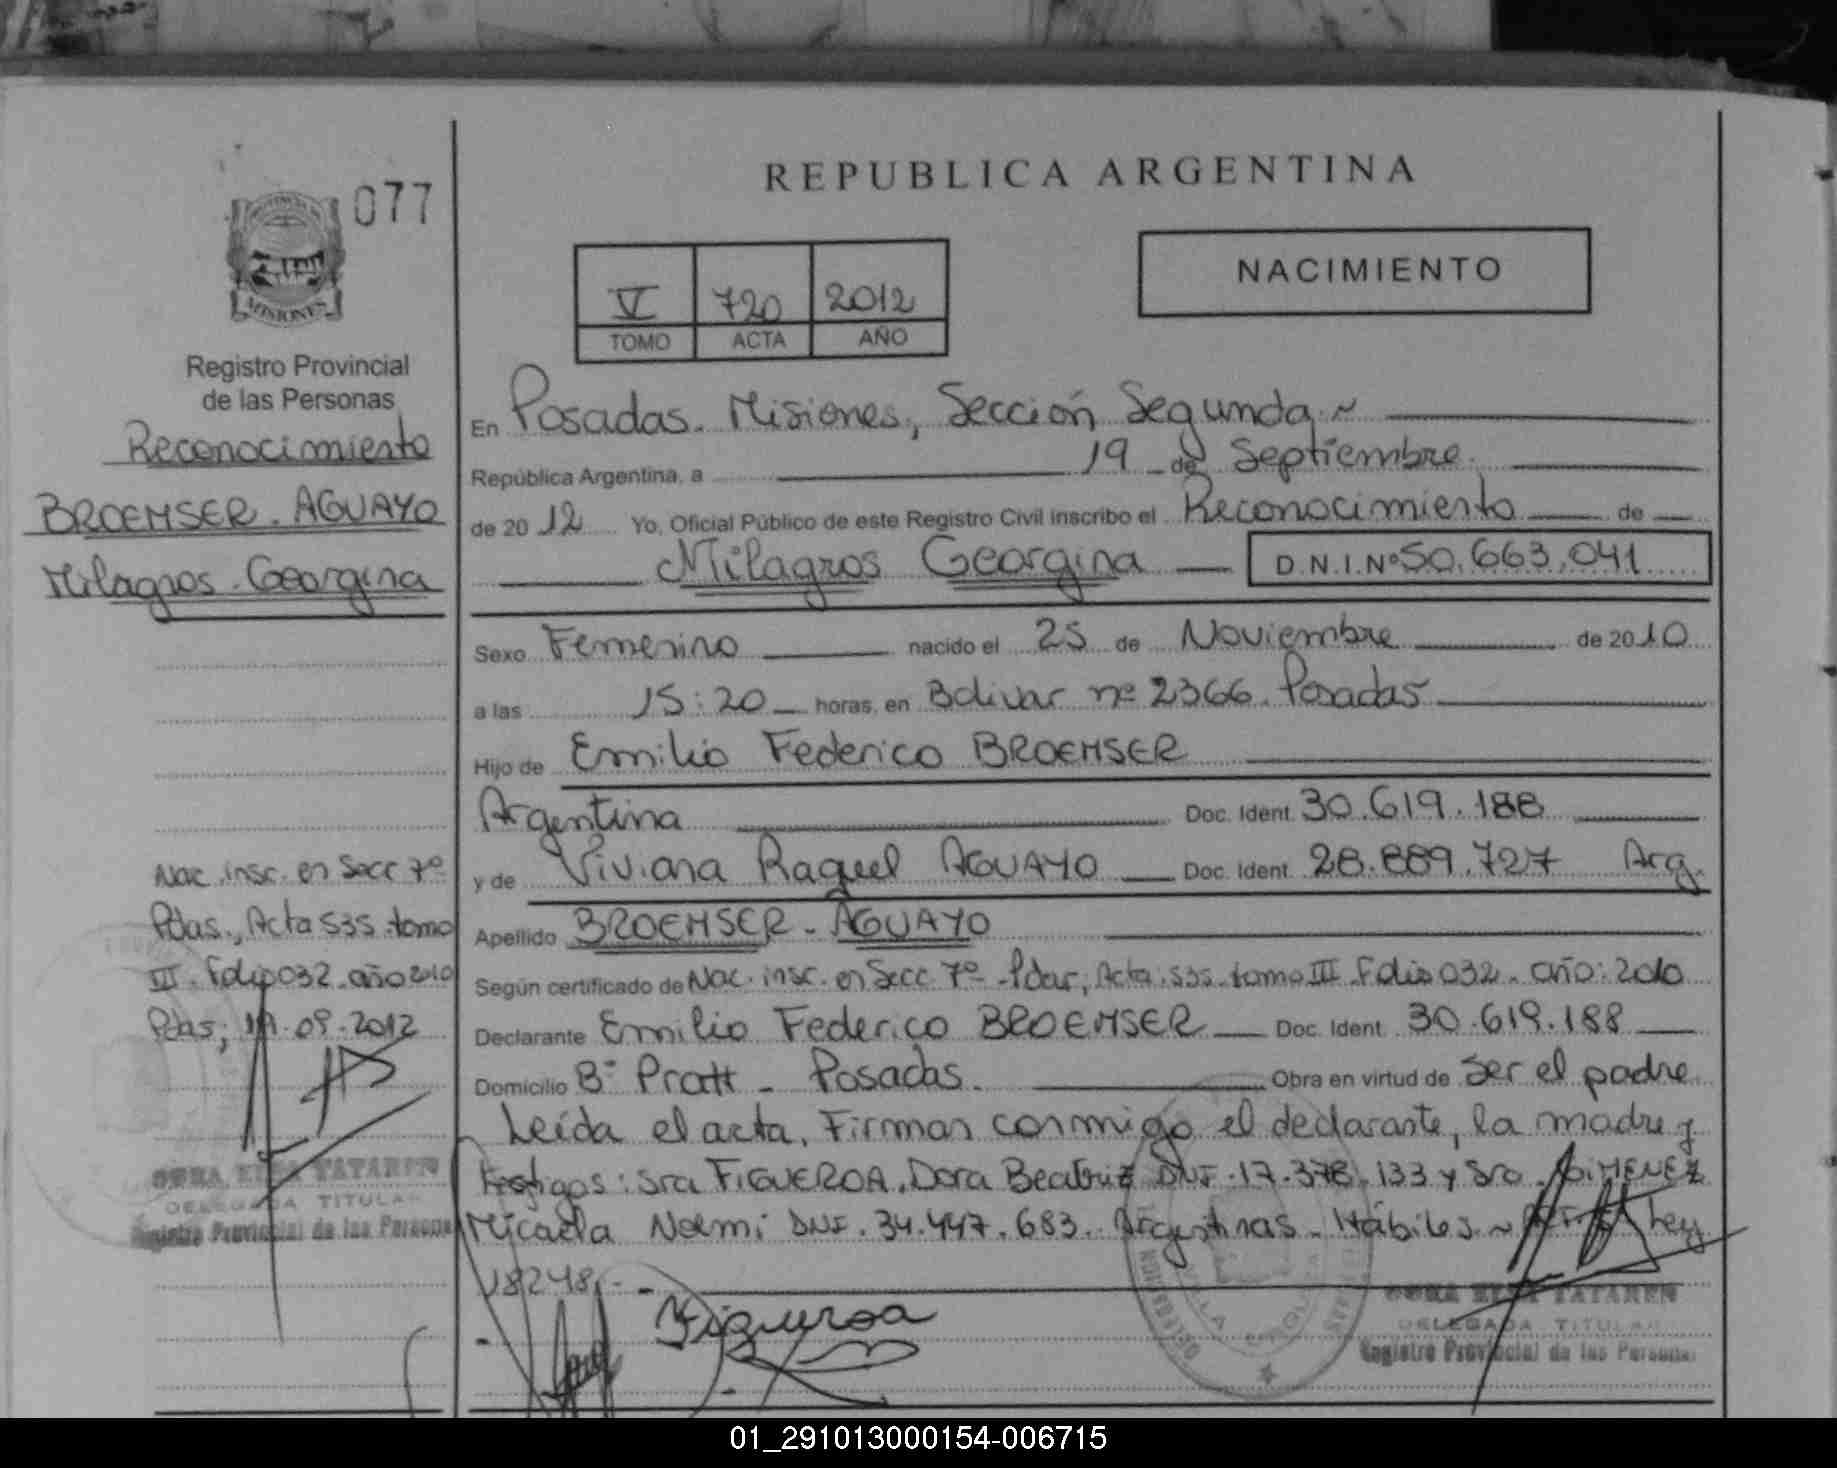 REPUBLICA ARGENTINA
077
PROVINCIA DE
MISIONES
NACIMIENTO
V 720 2012
TOMO ACTA AÑO
Registro Provincial
de las Personas
Reconocimiento
BROEMSER. AGUAYO
Milagros. Georgina
Nac. insc. en Secc 7º
Pdas., Acta 535. tomo
III. Folio 032. año 2010
Pdas; 19.09.2012
TATAREN
DELEGADA TITULAR
Registro Provincial de las Personas
En Posadas. Misiones, Sección Segunda.~
República Argentina, a 19 de Septiembre.
de 2012 Yo, Oficial Público de este Registro Civil inscribo el Reconocimiento de
Milagros Georgina D.N.I.Nº 50.663.041
Sexo Femenino nacido el 25 de Noviembre de 2010
a las 15:20 horas, en Bolivar nº 2366. Posadas
Hijo de Emilio Federico BROEMSER
Argentina Doc. Ident. 30.619.188
y de Viviana Raquel AGUAYO Doc. Ident. 28.889.727 Arg.
Apellido BROEMSER - AGUAYO
Según certificado de Nac. insc. en Secc 7º - Pdas; Acta: 535. tomo III. Folio 032. año: 2010
Declarante Emilio Federico BROEMSER Doc. Ident. 30.619.188
Domicilio Bº Pratt - Posadas. Obra en virtud de ser el padre
Leída el acta, Firman conmigo el declarante, la madre y
testigos: Sra FIGUEROA, Dora Beatriz DNI. 17.378.133 y Sra. GIMENEZ
Micaela Noemi DNI. 34.447.683. Argentinas. Hábiles.~ Ley
18248.-
Figueroa
TATAREN
DELEGADA TITULAR
Registro Provincial de las Personas
01_291013000154-006715